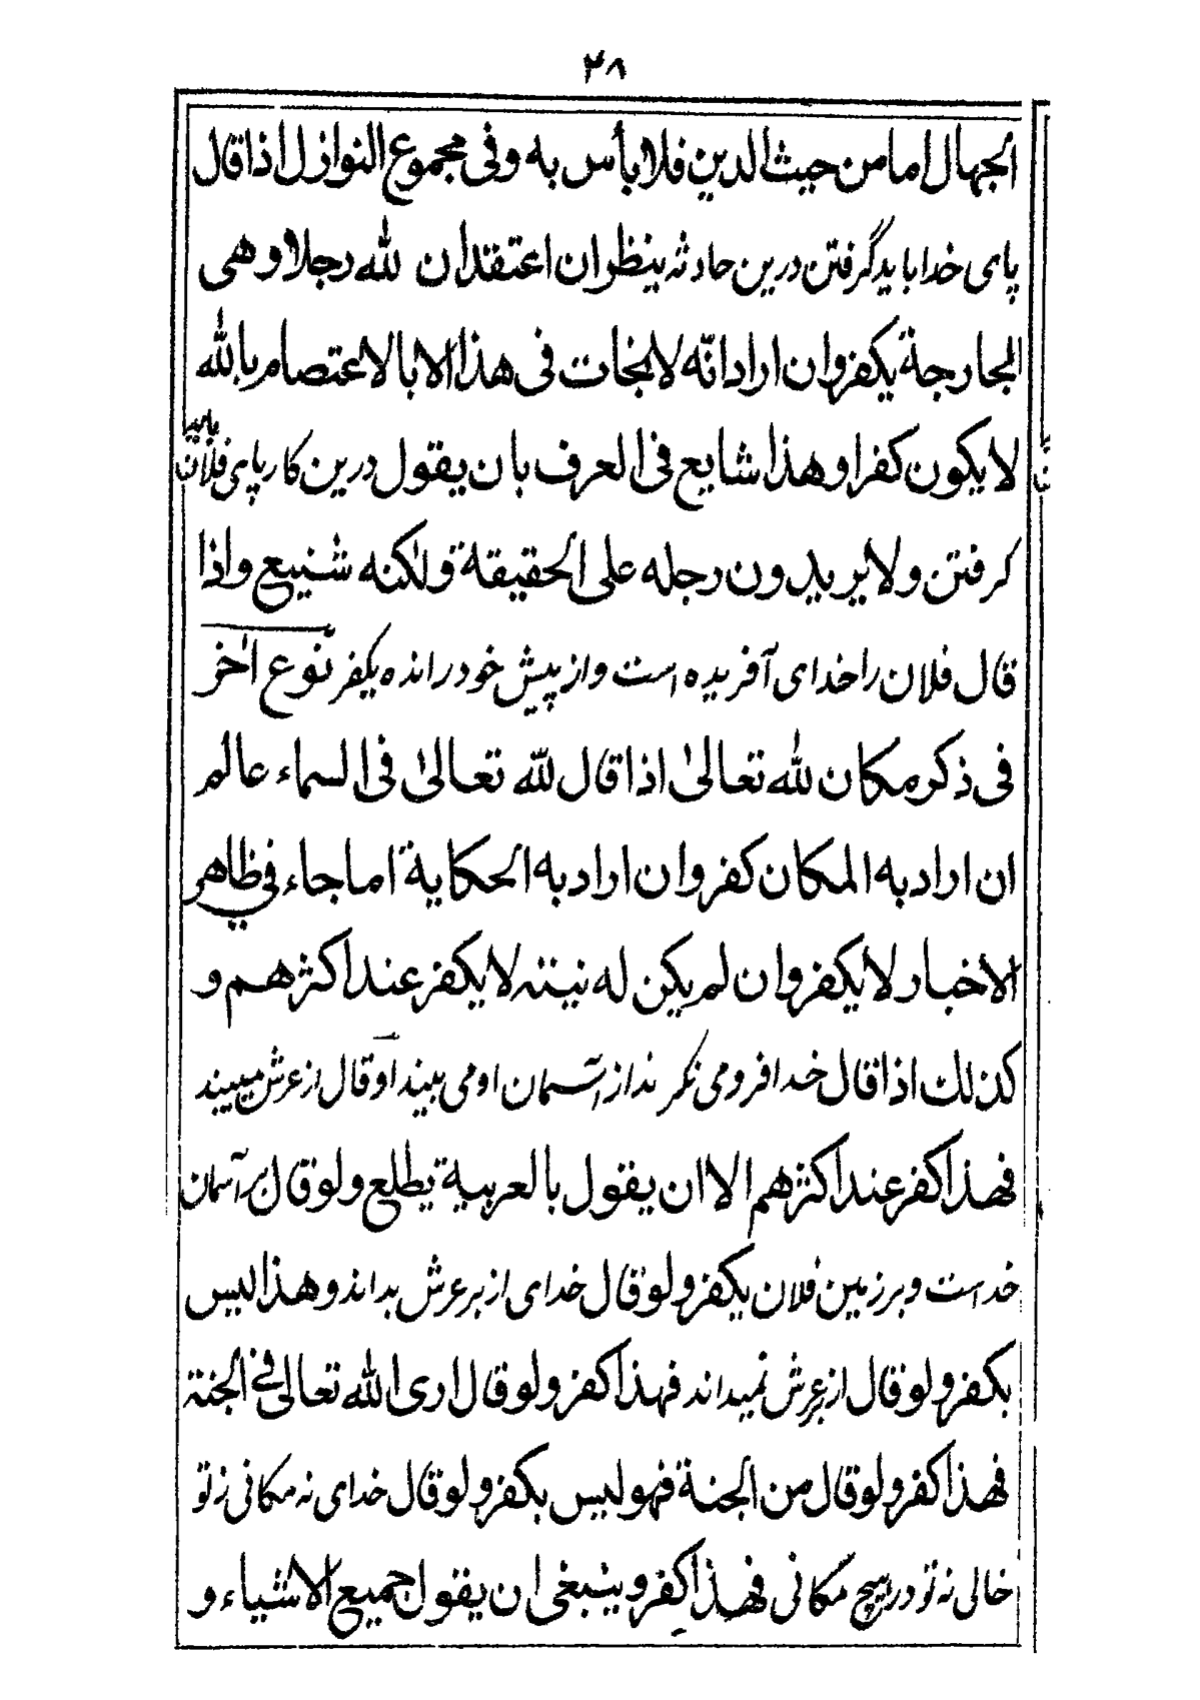 ۲۸
الجهال اما من حيث الدين فلا بأس به وفى مجموع النوازل اذا قال
پاى خدا بايد گرفتن درين حادثه ينظر ان اعتقد ان لله رجلا وهى
الجارحة يكفر وان اراد انّه لا نجات فى هذا الا بالاعتصام بالله
لا يكون كفرا وهذا شايع فى العرف بان يقول درين كار پاى فلان
كرفتن ولا يريدون رجله على الحقيقة ولكنه شنيع واذا
قال فلان را خداى آفريده است واز پيش خود رانده يكفر نوع اٰخر
فى ذكر مكان لله تعالىٰ اذا قال لله تعالىٰ فى السماء عالم
ان اراد به المكان كفر وان اراد به الحكاية اما جاء فى ظاهر
الاخبار لا يكفر وان لم يكن له نيته لا يكفر عند اكثرهم و
كذلك اذا قال خدا فرو مى نكرند از آسمان او مى بيند او قال از عرش ميبيند
فهذا كفر عند اكثرهم الا ان يقول بالعربية يطلع ولو قال بر آسمان
خداست وبر زمين فلان يكفر ولو قال خداى از بر عرش بداند وهذا ليس
بكفر ولو قال از عرش نميداند فهذا كفر ولو قال ارى الله تعالى فى الجنة
فهذا كفر ولو قال من الجنة فهو ليس بكفر ولو قال خداى نه مكانى ز تو
خالى نه تو در هيچ مكانى فهذا كفر وينبغى ان يقول جميع الاشياء و